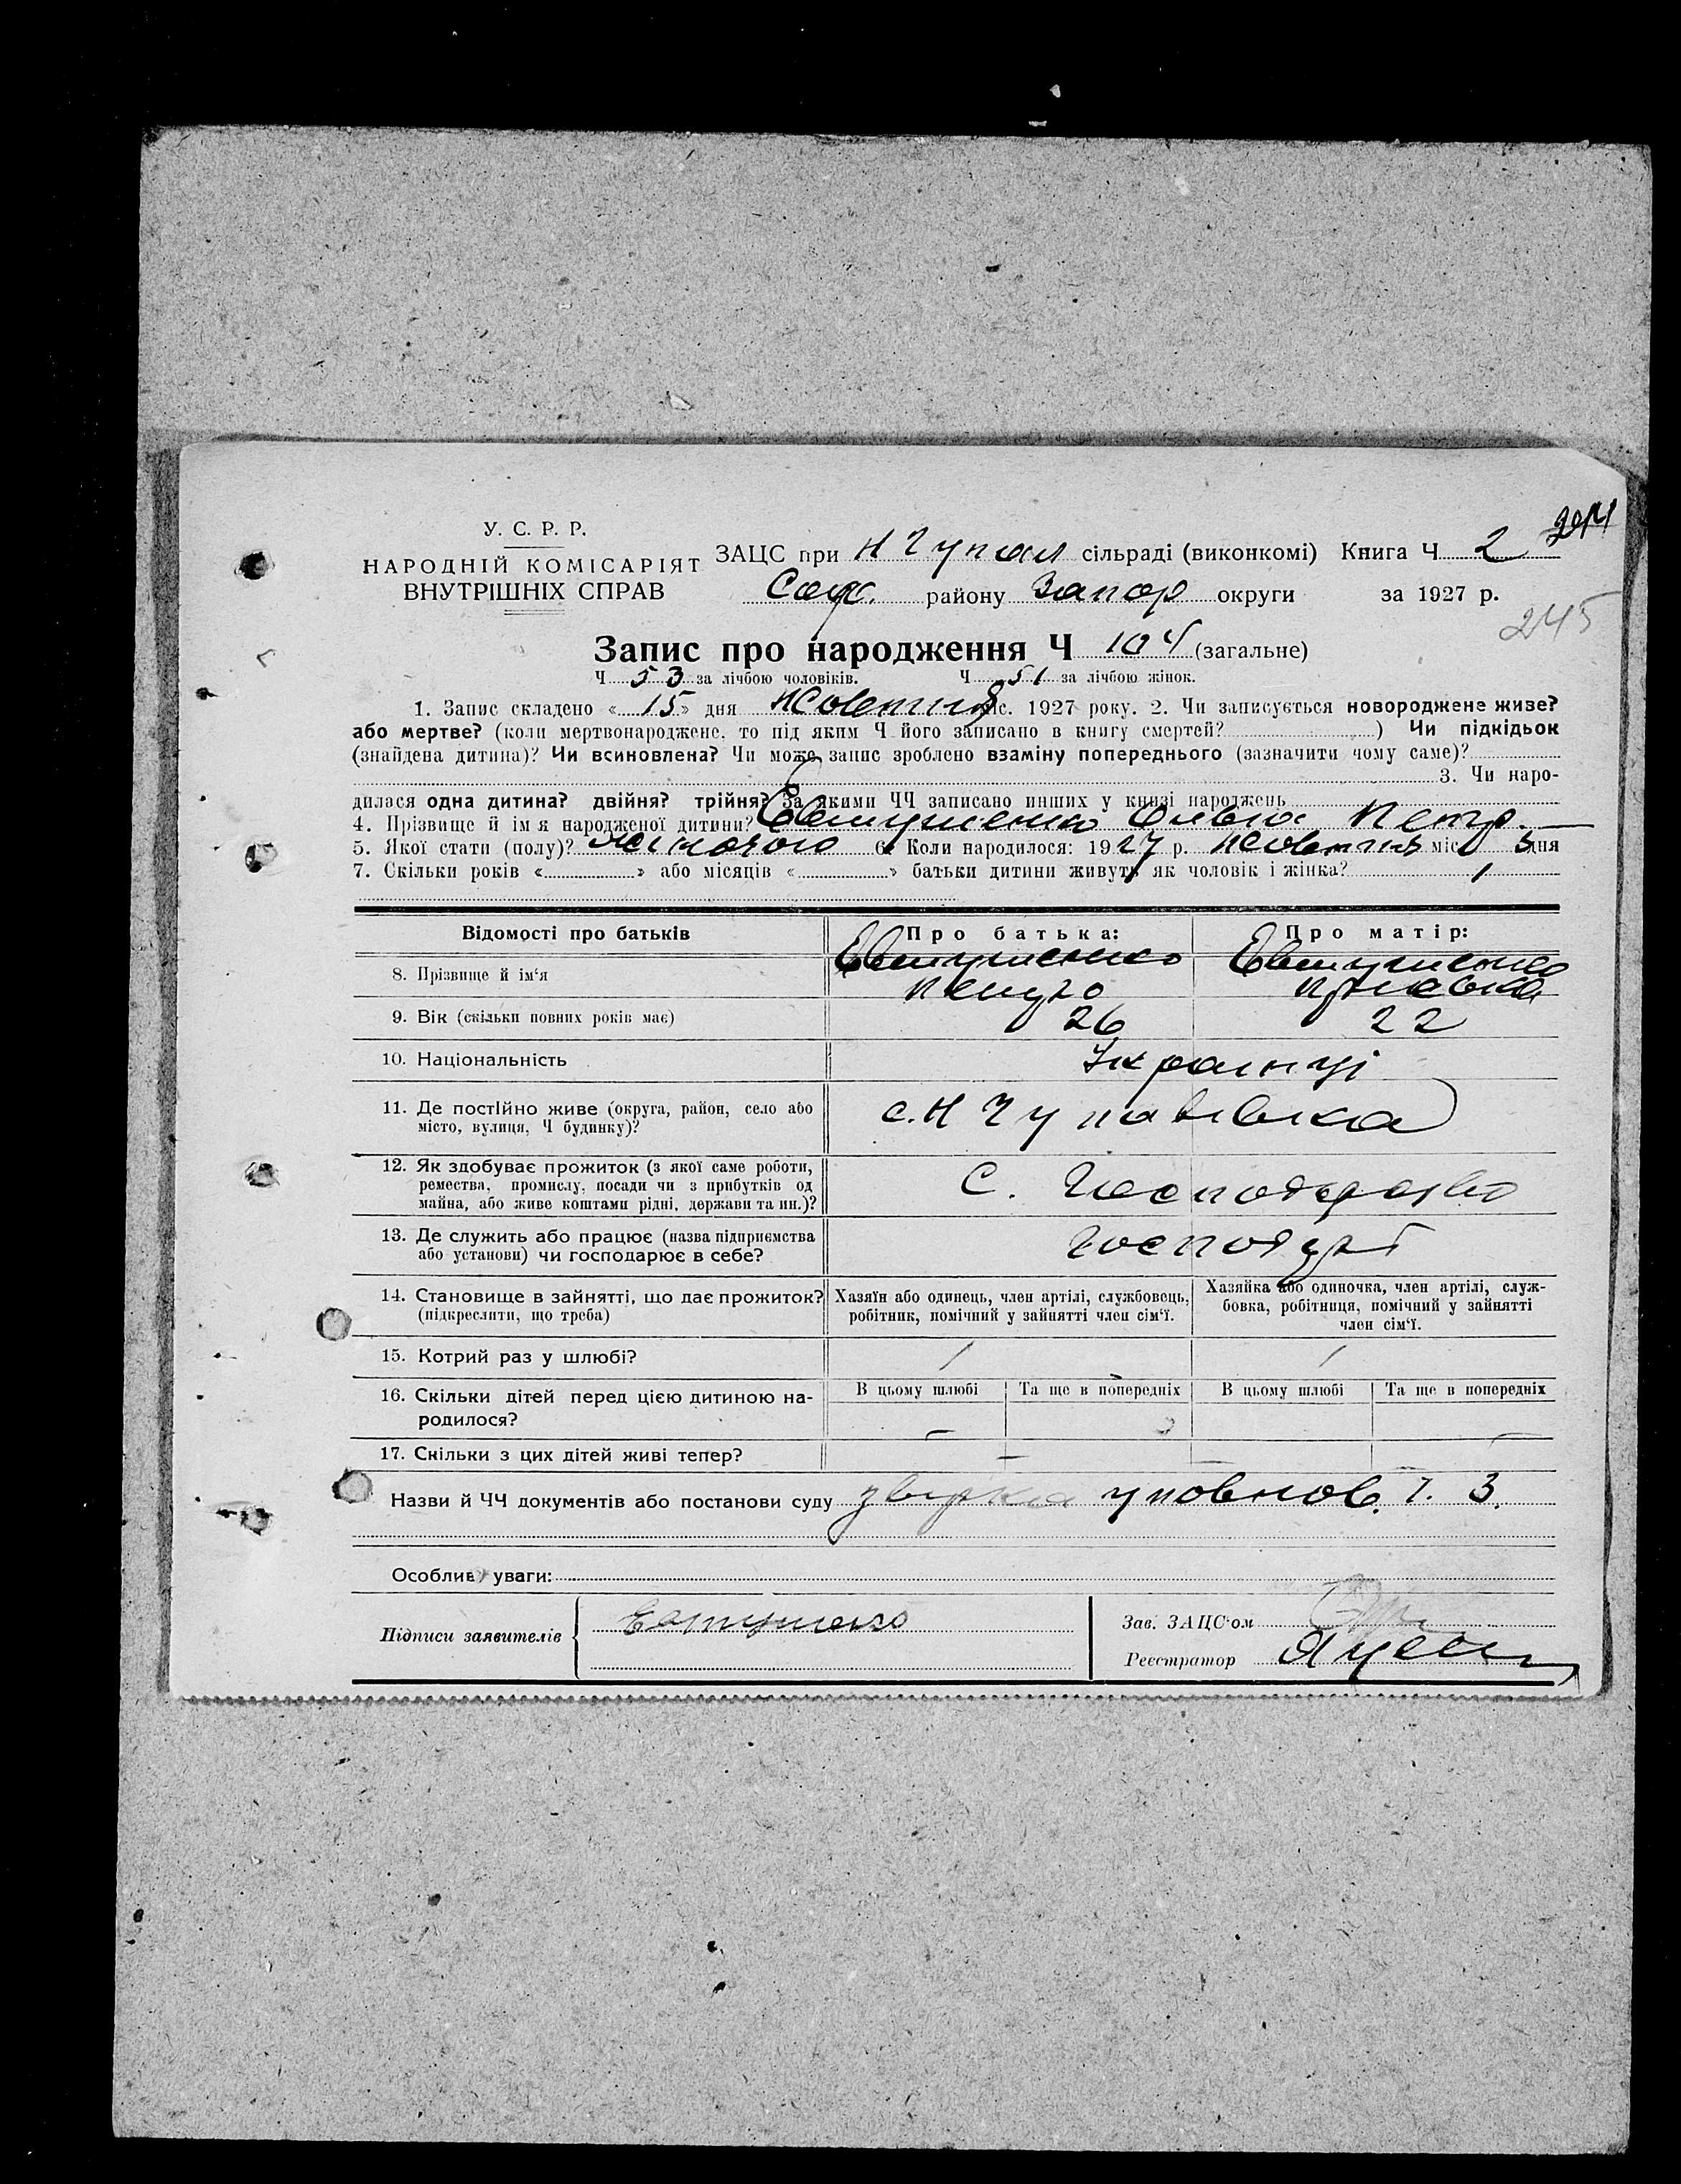 У. С. Р. Р.
НАРОДНІЙ КОМІСАРІЯТ
ВНУТРІШНІХ СПРАВ
ЗАЦС при сільраді (виконкомі) Книга Ч 2
району Запор округи за 1927 р.
245
Запис про народження Ч 104 (загальне)
Ч 53 за лічбою чоловіків. Ч 51 за лічбою жінок.
1. Запис складено « 15 » дня Жовтня міс. 1927 року. 2. Чи записується новороджене живе?
або мертве? (коли мертвонароджене, то під яким Ч його записано в книгу смертей? ) Чи підкідьок
(знайдена дитина)? Чи всиновлена? Чи може запис зроблено взаміну попереднього (зазначити чому саме)?
3. Чи наро-
дилася одна дитина? двійня? трійня? За якими ЧЧ записано инших у книзі народжень
4. Прізвище й ім я народженої дитини? Евтушенко Ольга Петр.
5. Якої стати (полу)? жіночого 6. Коли народилося: 1927 р. жовтня міс 5 дня
7. Скільки років « » або місяців « » батьки дитини живуть як чоловік і жінка? 1
Відомості про батьків Про батька: Про матір:
8. Прізвище й ім‘я Евтушенко Евтушенко
Петро
9. Вік (скільки повних років має) 26 22
10. Національність Українці
11. Де постійно живе (округа, район, село або
місто, вулиця, Ч будинку)?
12. Як здобуває прожиток (з якої саме роботи,
ремества, промислу, посади чи з прибутків од
майна, або живе коштами рідні, держави та ин.)?
С. Господарство
13. Де служить або працює (назва підприємства
або установи) чи господарює в себе?
14. Становище в зайнятті, що дає прожиток?
(підкреслити, що треба)
Хазяїн або одинець, член артілі, службовець,
робітник, помічний у зайнятті член сім‘ї.
Хазяйка або одиночка, член артілі, служ-
бовка, робітниця, помічний у зайнятті
член сім‘ї.
15. Котрий раз у шлюбі? 1 1
16. Скільки дітей перед цією дитиною на-
родилося?
В цьому шлюбі Та ще в попередніх В цьому шлюбі Та ще в попередніх
17. Скільки з цих дітей живі тепер? – – – –
Назви й ЧЧ документів або постанови суду уповнов. 3.
Особливі уваги:
Підписи заявителів Евтушенко
Зав. ЗАЦС‘ом
Реєстратор